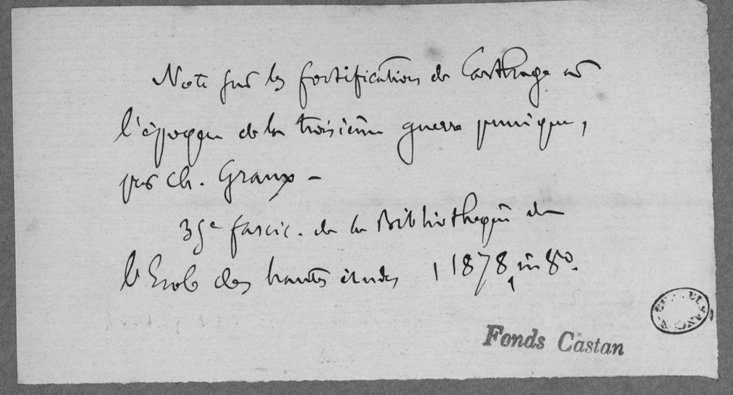 Note sur les fortifications de Carthage à
l'époque de la troisième guerre punique,
par Ch. Graux –
35e fascic. de la Bibliothèque de
l'Ecole des hautes études, 1878, in 8º.
Fonds Castan